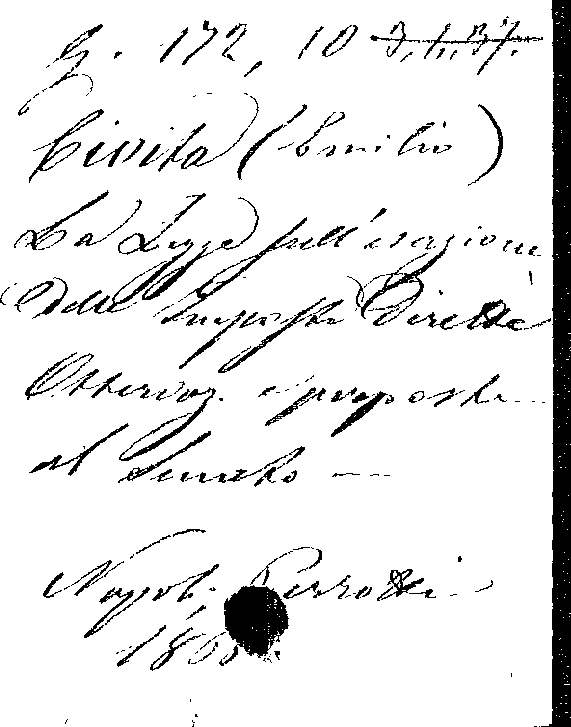 G. 172, 10 3,1,37.
Civita (Emilio)
La Legge sull'esazione
delle Imposte Dirette
Osservaz. e proposte
al Senato —
Napoli, Perrotti